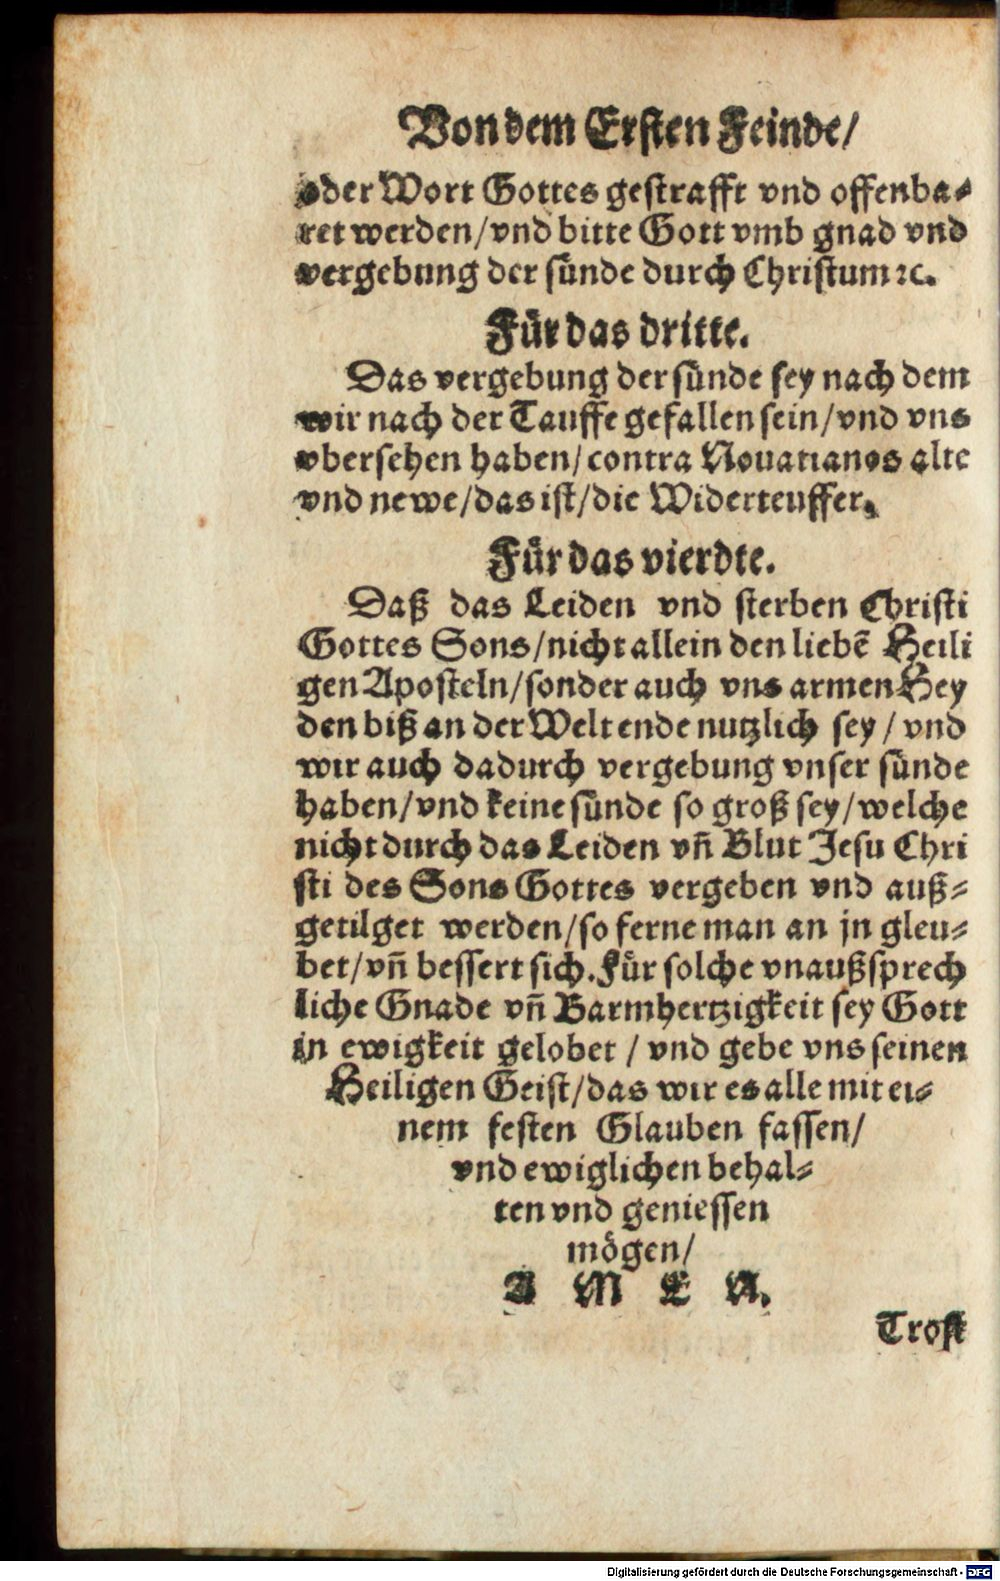 Von dem Ersten Feinde/
oder Wort Gottes gestrafft vnd offenba⸗
ret werden/vnd bitte Gott vmb gnad vnd
vergebung der sünde durch Christum ꝛc.
Für das dritte.
Das vergebung der sünde sey nach dem
wir nach der Tauffe gefallen sein/vnd vns
vbersehen haben/contra Nouatianos alte
vnd newe/das ist/die Widerteuffer.
Für das vierdte.
Daß das Leiden vnd sterben Christi
Gottes Sons/nicht allein den liebē Heili
gen Aposteln/sonder auch vns armen Hey
den biß an der Welt ende nutzlich sey/vnd
wir auch dadurch vergebung vnser sünde
haben/vnd keine sünde so groß sey/welche
nicht durch das Leiden vñ Blut Jesu Chri
sti des Sons Gottes vergeben vnd auß⸗
getilget werden/so ferne man an jn gleu⸗
bet/vñ bessert sich. Für solche vnaußsprech
liche Gnade vñ Barmhertzigkeit sey Gott
in ewigkeit gelobet/vnd gebe vns seinen
Heiligen Geist/das wir es alle mit ei⸗
nem festen Glauben fassen/
vnd ewiglichen behal⸗
ten vnd geniessen
mögen/
A M E N.
Trost
Digitalisierung gefördert durch die Deutsche Forschungsgemeinschaft - DFG